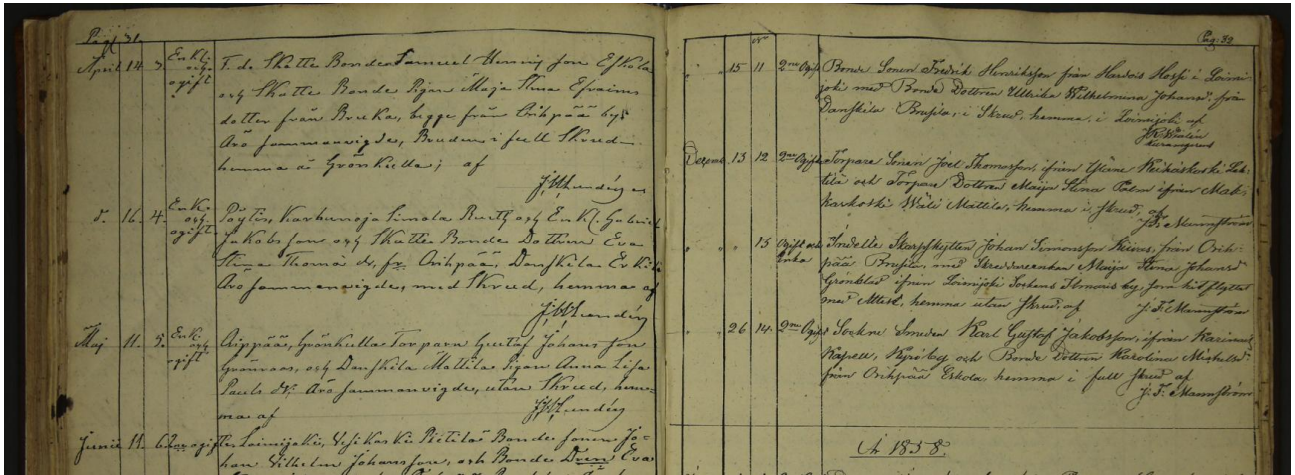 Pag: 31.
April 14. 3. Enkl. och ogift T. de Skatte Bonden Samuel Henning son Eskola
och Skatte Bonde Pigan Maja Stina Efraims
dotter från Bruka, begge från Orihpää by;
Äro sammanvigde, Bruden i full Skrud
hemma å Grönkulla; af
d. 16. 4. Enkl. och ogift Pöytis, Karhunoja Simola och Enkl. Gabriel
Jakobsson och Skatte Bonde Dottren Eva
Stina Thomæ dr, fr. Orihpää, Danskila Erkilä
Äro sammanvigde, med Skrud, hemma af
Maj 11. 5. Enkl. och ogift Orippää, Grönkulla Torparn Gustaf Johans son
Grönroos, och Danskila Mattila Pigan Anna Lisa
Pauls dr. Äro sammanvigde, utan Skrud, hem-
ma af
Junii 11. 6. ogifte Loimijoki, Vesikoski Pietilä Bonde sonen Jo-
han Vilhelm Johansson, och Bonde Dren Eva
Pag: 32
15 11 2ne Ogift Bonde Sonen Fredrik Henriksson från i Loimi-
joki med Bonde Dottren Ullrika Wilhelmina Johansd. från
Danskila Brusila, i Skrud, hemma, i Loimijoki af
Decemb. 13 12 2ne Ogifte Torpare Sonen Joel Thomasson, ifrån Yläne
och Torpare Dottren Maija Stina Palm ifrån
Mattila, hemma i Skrud, af
J. F. Mannström
15 Ogift och Enka Indelte Skarpskytten Johan Simonsson från Orih-
pää Brusila, med Skreddareenkan Maija Stina Johansd
Grönblad ifrån Loimijoki Sockens by, som hit flyttat
med Attest, hemma utan Skrud, af J. F. Mannström
26 14. 2ne Ogift Sockne Smeden Karl Gustaf Jakobsson, ifrån Karinais
Kapell, Kyrö by och Bonde Dottren Karolina Michelsd.
från Orihpää Eskola, hemma i full Skrud af
J. F. Mannström
År 1858.